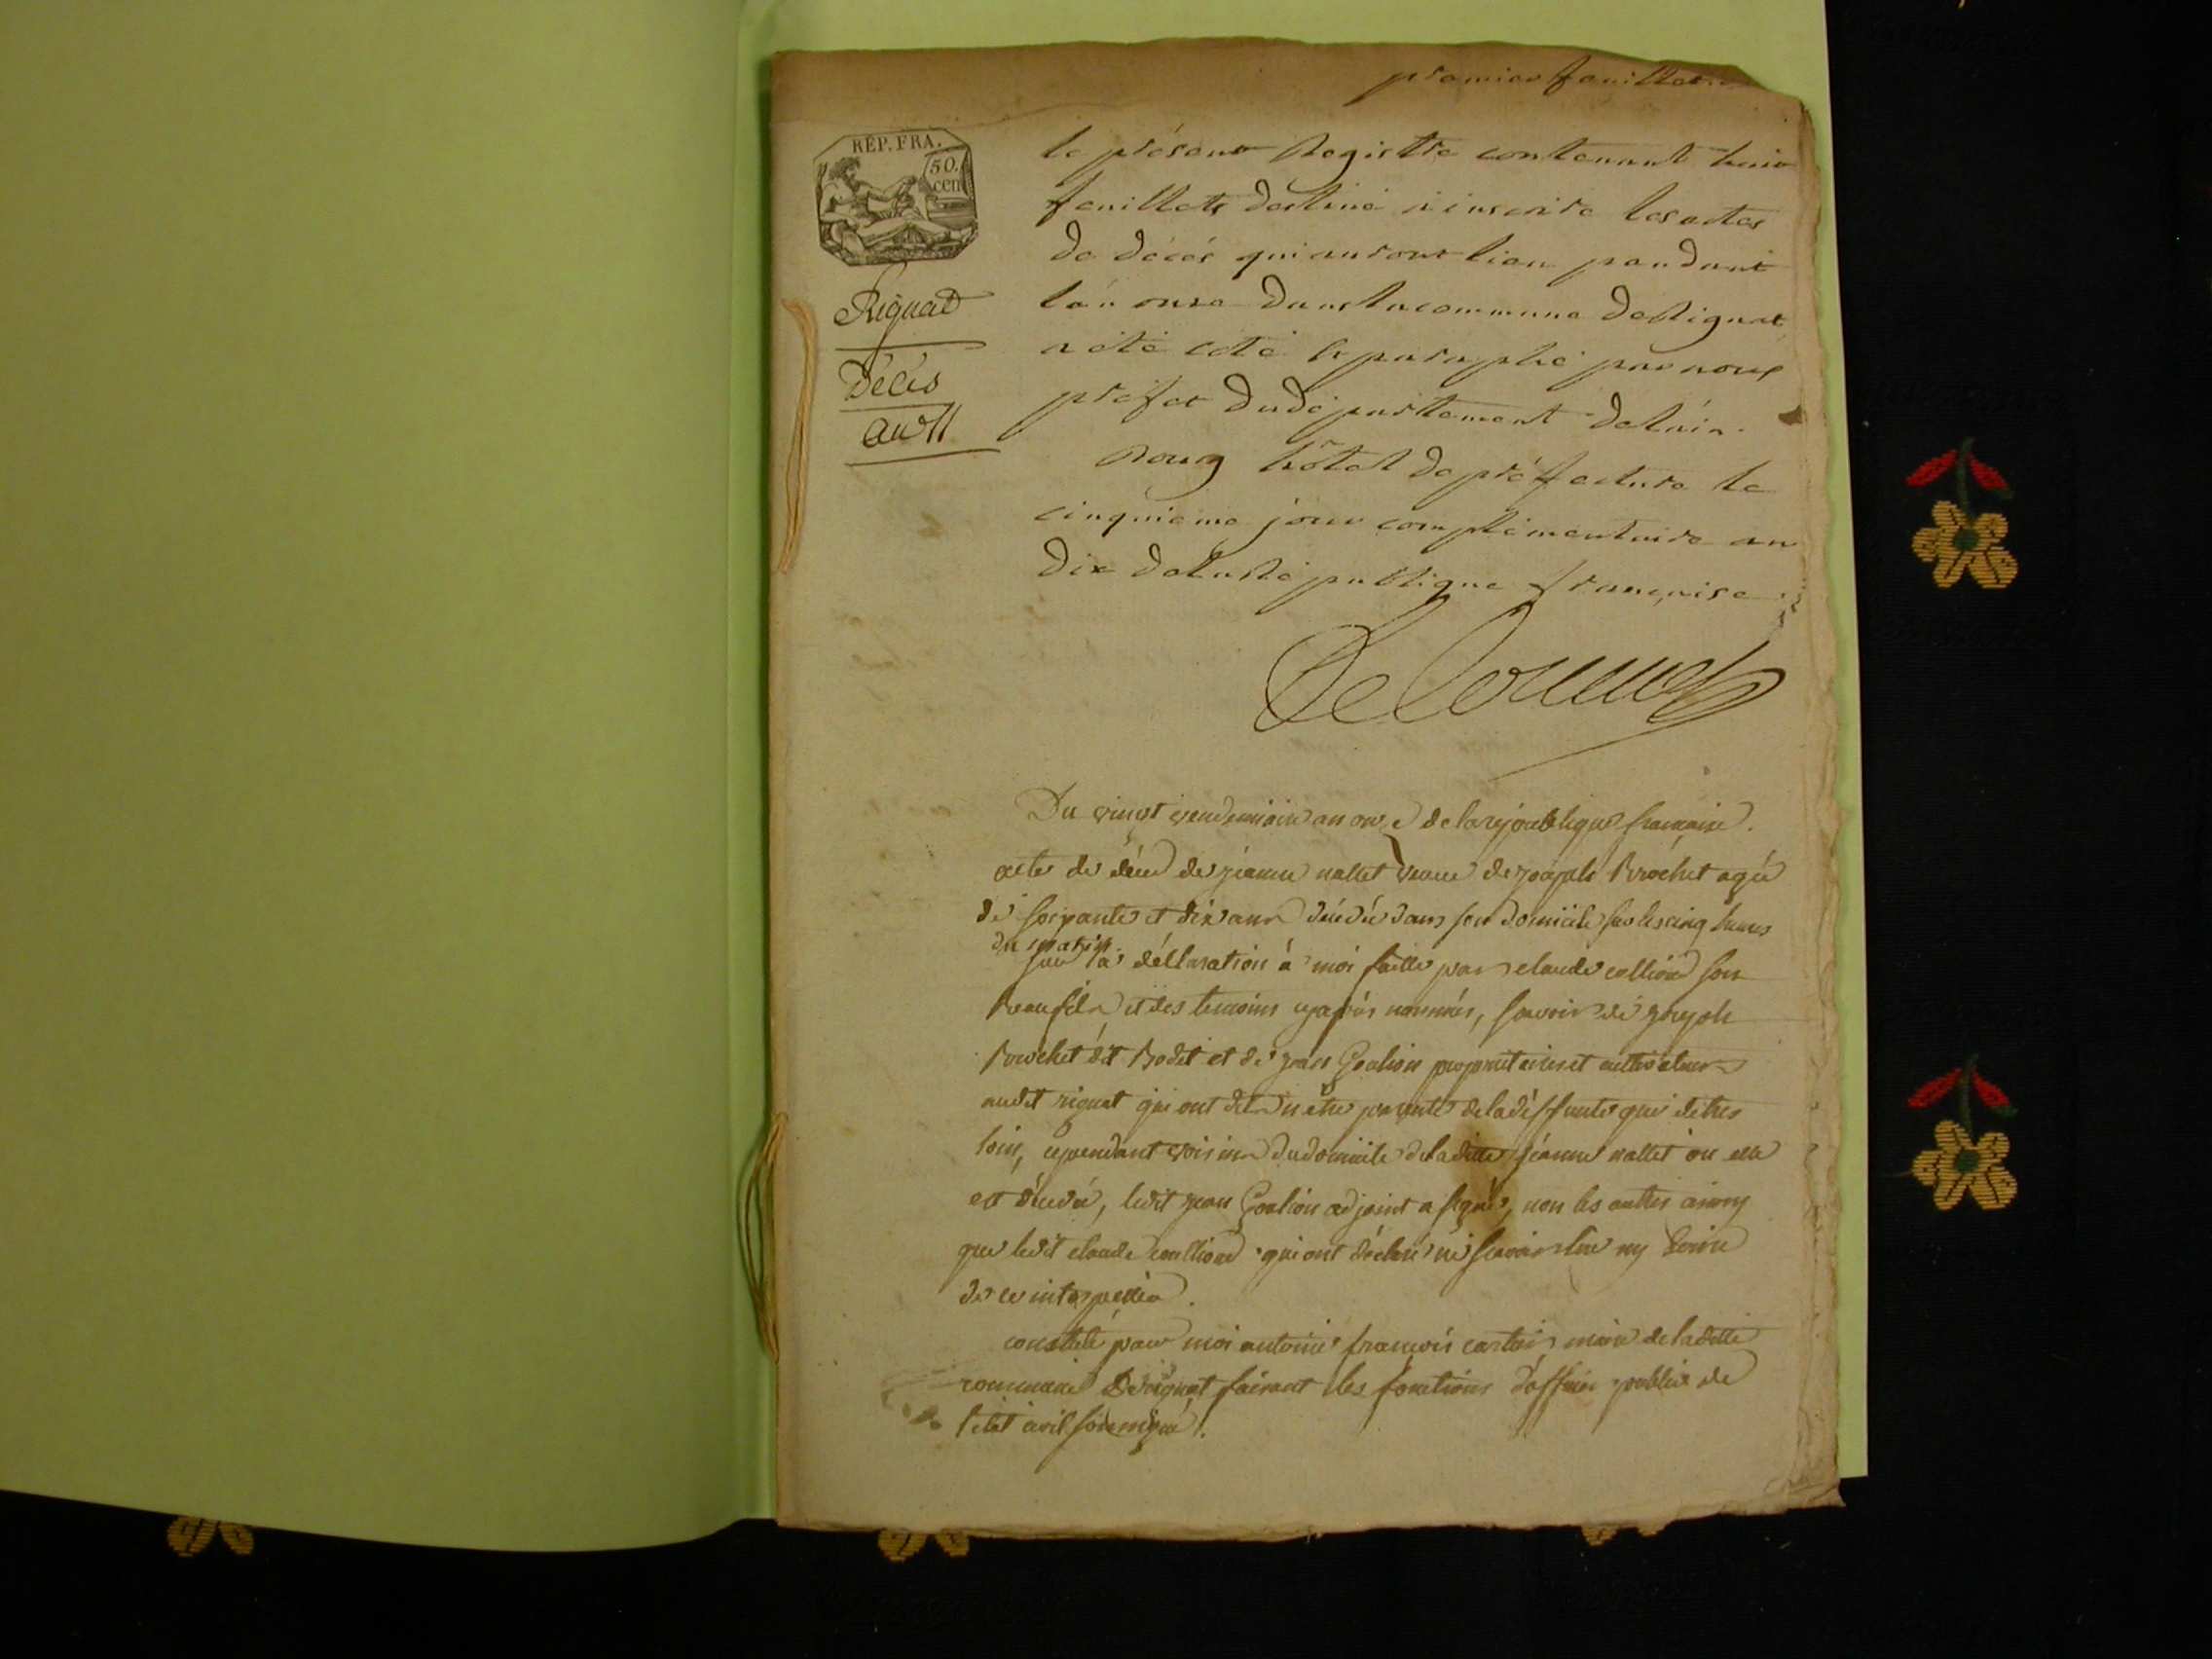 premier feuillet
RÉP. FRA.
50.
cen
Rignat
Décès
an 11
le présent Registre contenant huit
feuillets destiné à inscrire les actes
de décès qui auront lieu pendant
l'an onze dans la commune de Rignat
a été coté & paraphé par nous
préfet du département de l'ain.
Bourg hôtel de préfecture le
cinquieme jour complémentaire an
dix de la République française.
Du vingt vendemiaire an onze de la republique francaise.
acte de décéd de jéanne nallet veuve de joseph Brochet agée
de soixante et dix ans décédée dans son domicile sur les cinq heures
du matin
sur la déllaration á moi faitte par claude collion son
Beaufils et des temoins cyaprés nommés, savoir de joseph
Brochet dit Bodet et de jean Goulion propriétaires et cultivateurs
audit rignat qui ont dit n'etre parents de la déffunte que de tres
loin, cependant voisins du domicile de la ditte jéanne nallet ou elle
est décédée, ledit jean Goulion adjoint a signé, non les autres ainsy
que ledit claude coullion qui ont déclaré né savoir lire ny Ecrire
de ce interpellés.
constaté par moi antoine francois cartier maire de la ditte
commune De rignat faisant les fonctions d'officier public de
l'etat civil soussigné.